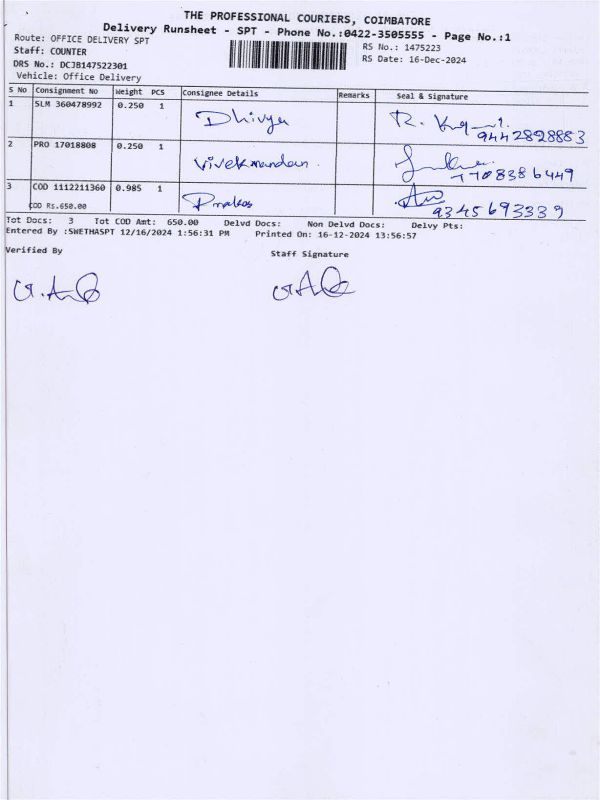 THE PROFESSIONAL COURIERS, COIMBATORE
Delivery Runsheet - SPT - Phone No.:0422-3505555 - Page No.:1
Route: OFFICE DELIVERY SPT RS No.: 1475223
Staff: COUNTER RS Date: 16-Dec-2024
DRS No.: DCJB147522301
Vehicle: Office Delivery
S No Consignment No Weight PCS Consignee Details Remarks Seal & Signature
1 SLM 360478992 0.250 1 Dhivya R.
9442828883
2 PRO 17018808 0.250 1 Vivekanandan
7708386449
3 COD 1112211360 0.985 1
COD Rs.650.00 9345693339
Tot Docs: 3 Tot COD Amt: 650.00 Delvd Docs: Non Delvd Docs: Delvy Pts:
Entered By :SWETHASPT 12/16/2024 1:56:31 PM Printed On: 16-12-2024 13:56:57
Verified By Staff Signature